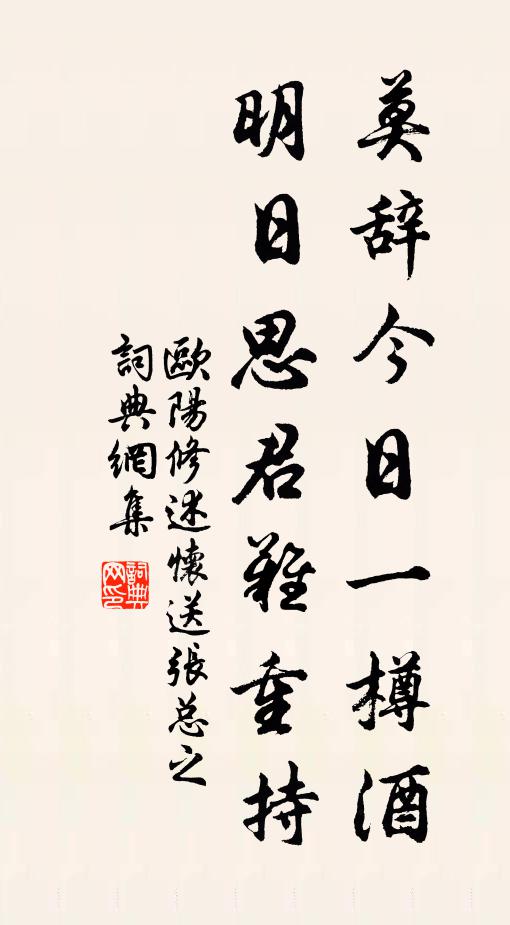 莫辞今日一樽酒
明日思君難重持
歐陽修述懷送張惣之
詞典網集
詞典网印